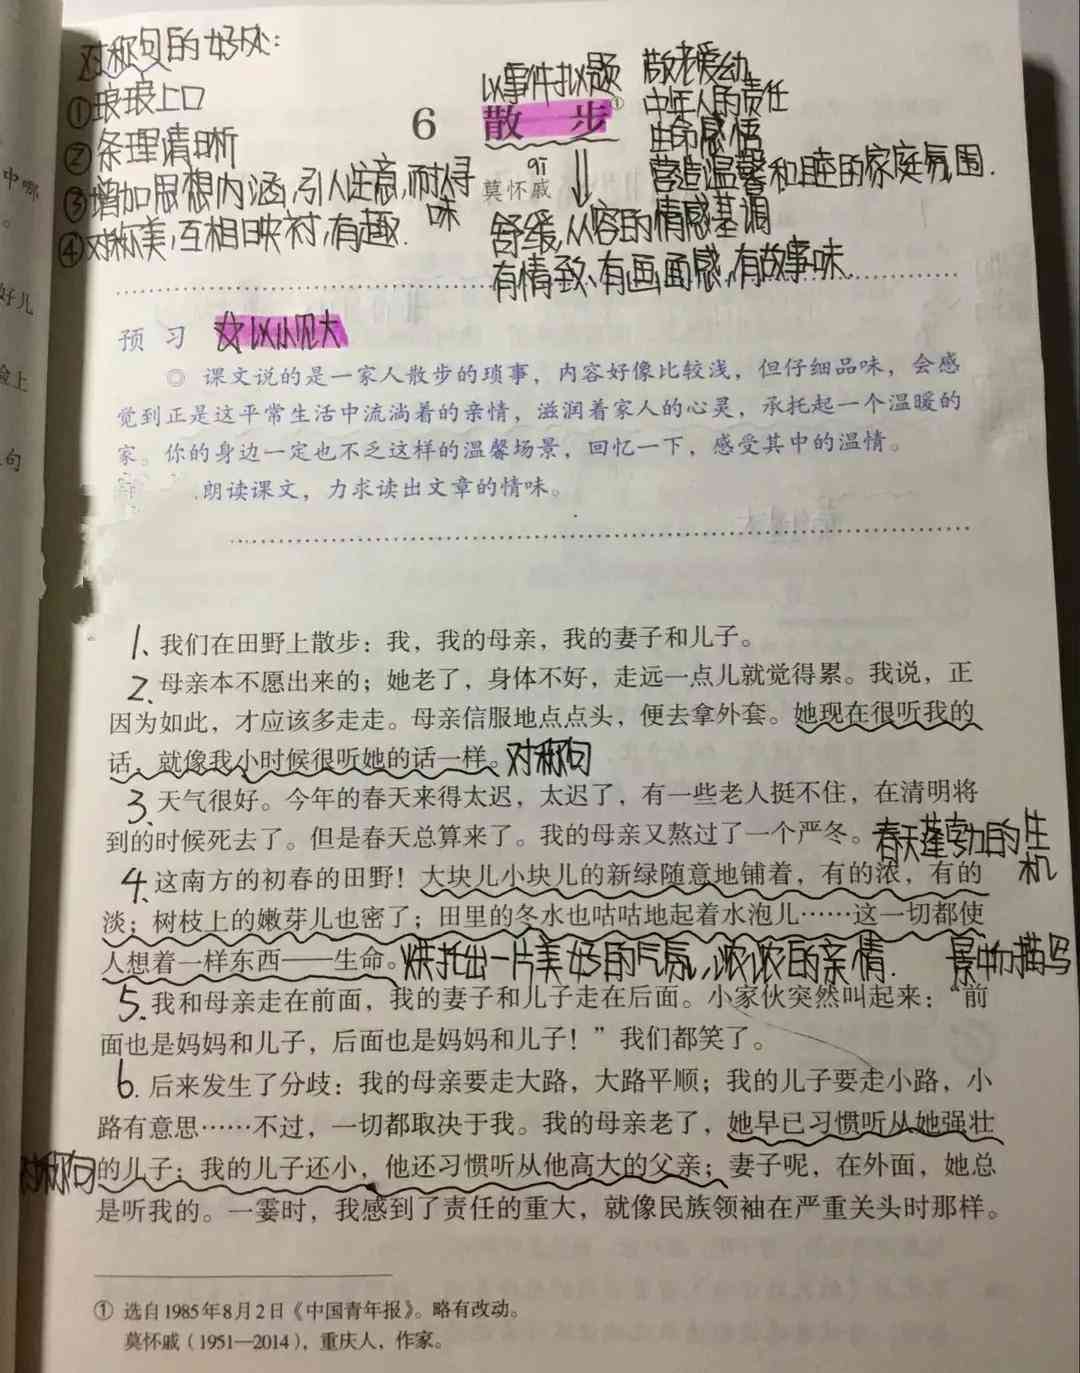 对称句的好处:
①琅琅上口
②条理清晰
③增加思想内涵,引人注意,而耐寻
味
④对称美,互相映衬,有趣.
以事件拟题
6 散步①
qī
莫怀戚
敬老爱幼
中年人的责任
生命感悟
营造温馨和睦的家庭氛围.
舒缓,从容的情感基调
有情致、有画面感,有故事味.
中哪
。
好儿
脸上
句
预习 ☆以小见大
◎ 课文说的是一家人散步的琐事，内容好像比较浅，但仔细品味，会感
觉到正是这平常生活中流淌着的亲情，滋润着家人的心灵，承托起一个温暖的
家。你的身边一定也不乏这样的温馨场景，回忆一下，感受其中的温情。
朗读课文，力求读出文章的情味。
1、我们在田野上散步：我，我的母亲，我的妻子和儿子。
2、母亲本不愿出来的；她老了，身体不好，走远一点儿就觉得累。我说，正
因为如此，才应该多走走。母亲信服地点点头，便去拿外套。她现在很听我的
话，就像我小时候很听她的话一样。对称句
3、天气很好。今年的春天来得太迟，太迟了，有一些老人挺不住，在清明将
到的时候死去了。但是春天总算来了。我的母亲又熬过了一个严冬。春天蓬勃的生
机
4、这南方的初春的田野！大块儿小块儿的新绿随意地铺着，有的浓，有的
淡；树枝上的嫩芽儿也密了；田里的冬水也咕咕地起着水泡儿……这一切都使
人想着一样东西——生命。烘托出一片美好的气氛,浓浓的亲情. 景物描写
5、我和母亲走在前面，我的妻子和儿子走在后面。小家伙突然叫起来：“前
面也是妈妈和儿子，后面也是妈妈和儿子！”我们都笑了。
6、后来发生了分歧：我的母亲要走大路，大路平顺；我的儿子要走小路，小
路有意思……不过，一切都取决于我。我的母亲老了，她早已习惯听从她强壮
对称句 的儿子；我的儿子还小，他还习惯听从他高大的父亲；妻子呢，在外面，她总
是听我的。一霎时，我感到了责任的重大，就像民族领袖在严重关头时那样。
① 选自1985年8月2日《中国青年报》。略有改动。
莫怀戚（1951—2014），重庆人，作家。